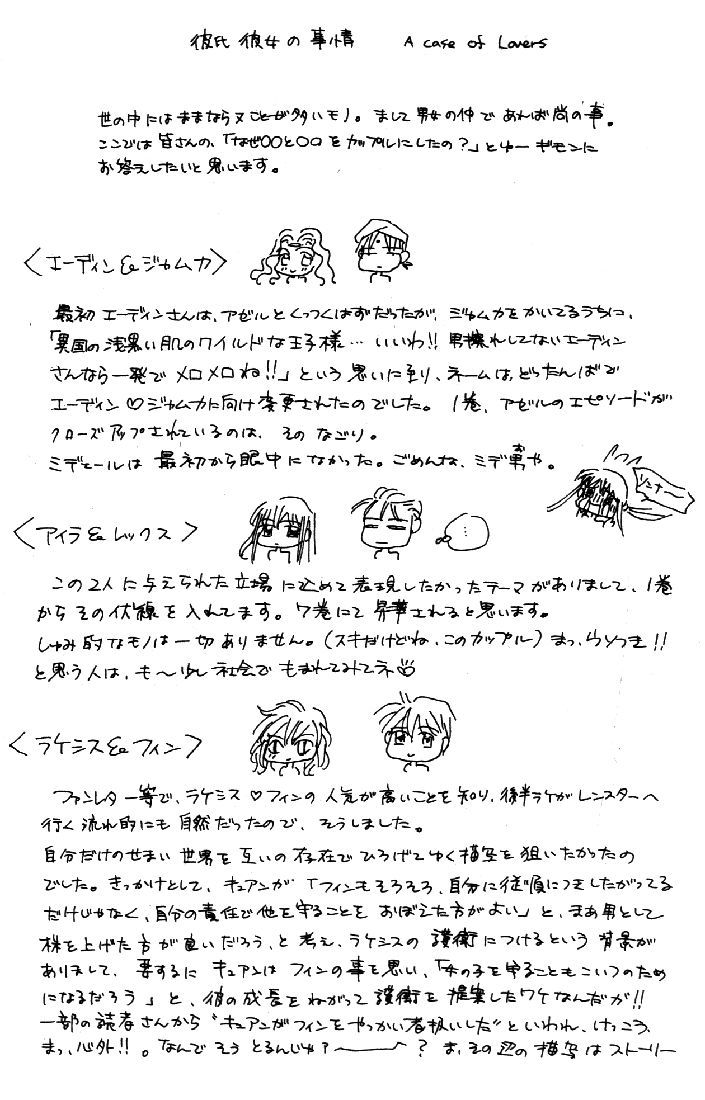 彼氏彼女の事情　A case of Lovers
世の中にはままならヌことが多いモノ。まして男女の仲であれば尚の事。
ここでは皆さんの、「なぜ〇〇と〇〇をカップルにしたの？」とゆーギモンに
お答えしたいと思います。
〈エーディン&ジャムカ〉
最初エーディンさんは、アゼルとくっつくはずだったが、ジャムカをかいてるうちに、
「異国の浅黒い肌のワイルドな王子様…いいわ!! 男慣れしてないエーディン
さんなら一発でメロメロね!!」という思いに至り、ネームは、どったんばで
エーディン♡ジャムカに向け変更されたのでした。1巻、アゼルのエピソードが
クローズアップされているのは、そのなごり。
ミデェールは最初から眼中になかった。ごめんな、ミデ男や。
〈アイラ&レックス〉
…
この2人に与えられた立場に込めて表現したかったテーマがありまして、1巻
からその伏線を入れてます。7巻にて昇華されると思います。
しゅみ的なモノは一切ありません。（スキだけどね、このカップル）まっ、うそつき!!
と思う人は、も〜少し社会でもまれてみてネ
〈ラケシス&フィン〉
ファンレター等で、ラケシス♡フィンの人気が高いことを知り、後半ラケがレンスターへ
行く流れ的にも自然だったので、そうしました。
自分だけのせまい世界を互いの存在でひろげてゆく描写を狙いたかったの
でした。きっかけとして、キュアンが「フィンもそろそろ、自分に従順につきしたがってる
だけじゃなく、自分の責任で他を守ることをおぼえた方がよい」と、まあ男として
株を上げた方が良いだろう、と考え、ラケシスの護衛につけるという背景が
ありまして、要するにキュアンはフィンの事を思い、「女の子を守ることもこいつのため
になるだろう」と、彼の成長をねがって護衛を提案したワケなんだが!!
一部の読者さんから"キュアンがフィンをやっかい者扱いした"といわれ、けっこう、
まっ、心外!!。なんでそうとるんじゃ？〜？ま、その辺の描写はストーリー